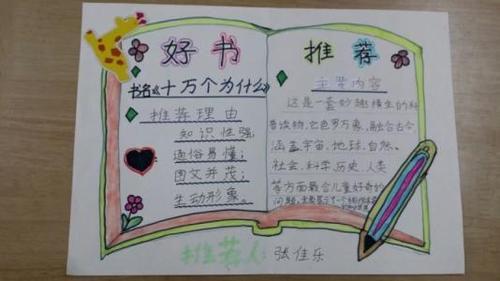 好书
推荐
书名《十万个为什么》
推荐理由
知识性强；
通俗易懂；
图文并茂；
生动形象。
主要内容
这是一套妙趣横生的科
普读物，它包罗万象，融合古今
涵盖宇宙、地球、自然、
社会、科学、历史、人类
等方面最合儿童好奇的
问题，
推荐人：张佳乐